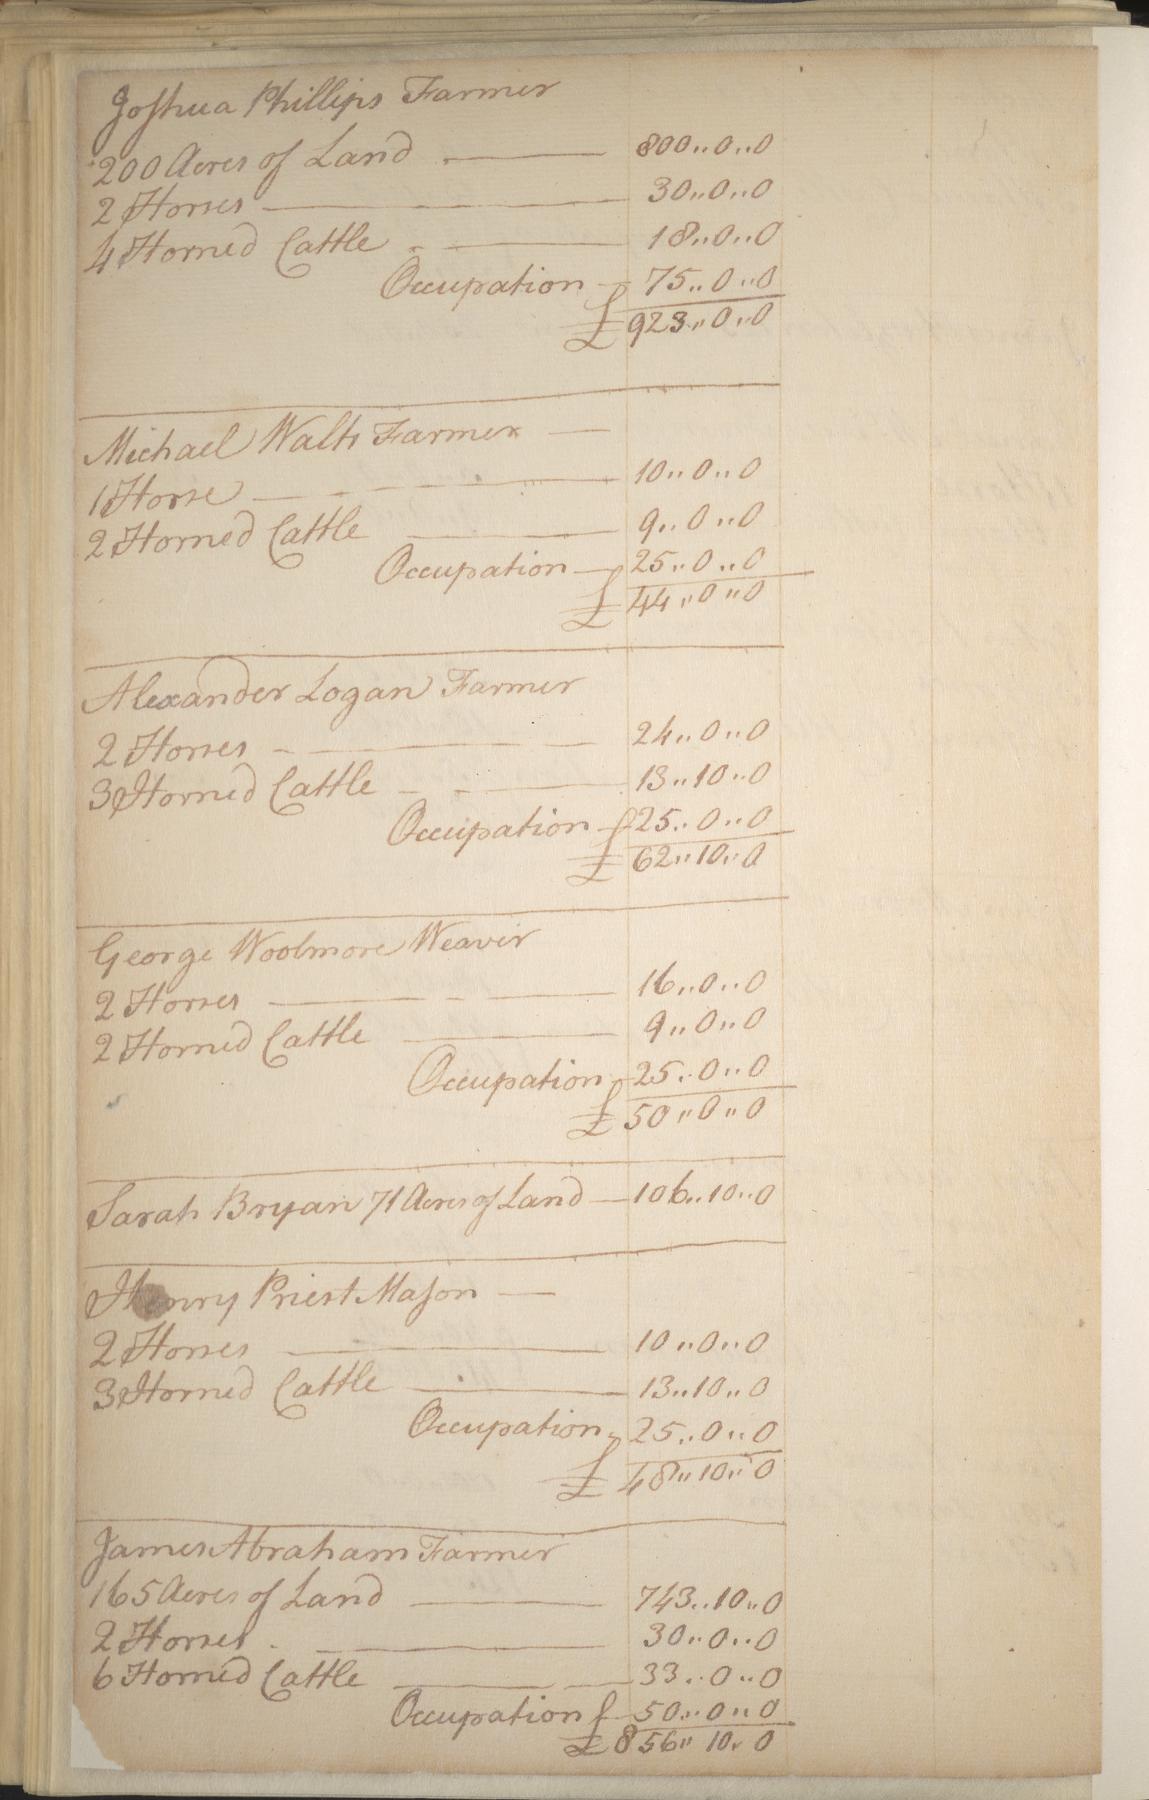 Joshua Phillips Farmer
200 Acres of Land 800..0..0
2 Horses 30..0..0
4 Horned Cattle 18..0..0
Occupation 75..0..0
£ 923..0..0
Michael Walts Farmer
1 Horse 10..0..0
2 Horned Cattle 9..0..0
Occupation 25..0..0
£ 44..0..0
Alexander Logan Farmer
2 Horses 24..0..0
3 Horned Cattle 13..10..0
Occupation 25..0..0
£ 62..10..0
George Woolmore Weaver
2 Horses 16..0..0
2 Horned Cattle 9..0..0
Occupation 25..0..0
£ 50..0..0
Sarah Bryan 71 Acres of Land 106..10..0
Henry Priest Mason
2 Horses 10..0..0
3 Horned Cattle 13..10..0
Occupation 25..0..0
£ 48..10..0
James Abraham Farmer
165 Acres of Land 743..10..0
2 Horses 30..0..0
6 Horned Cattle 33..0..0
Occupation 50..0..0
£ 856..10..0